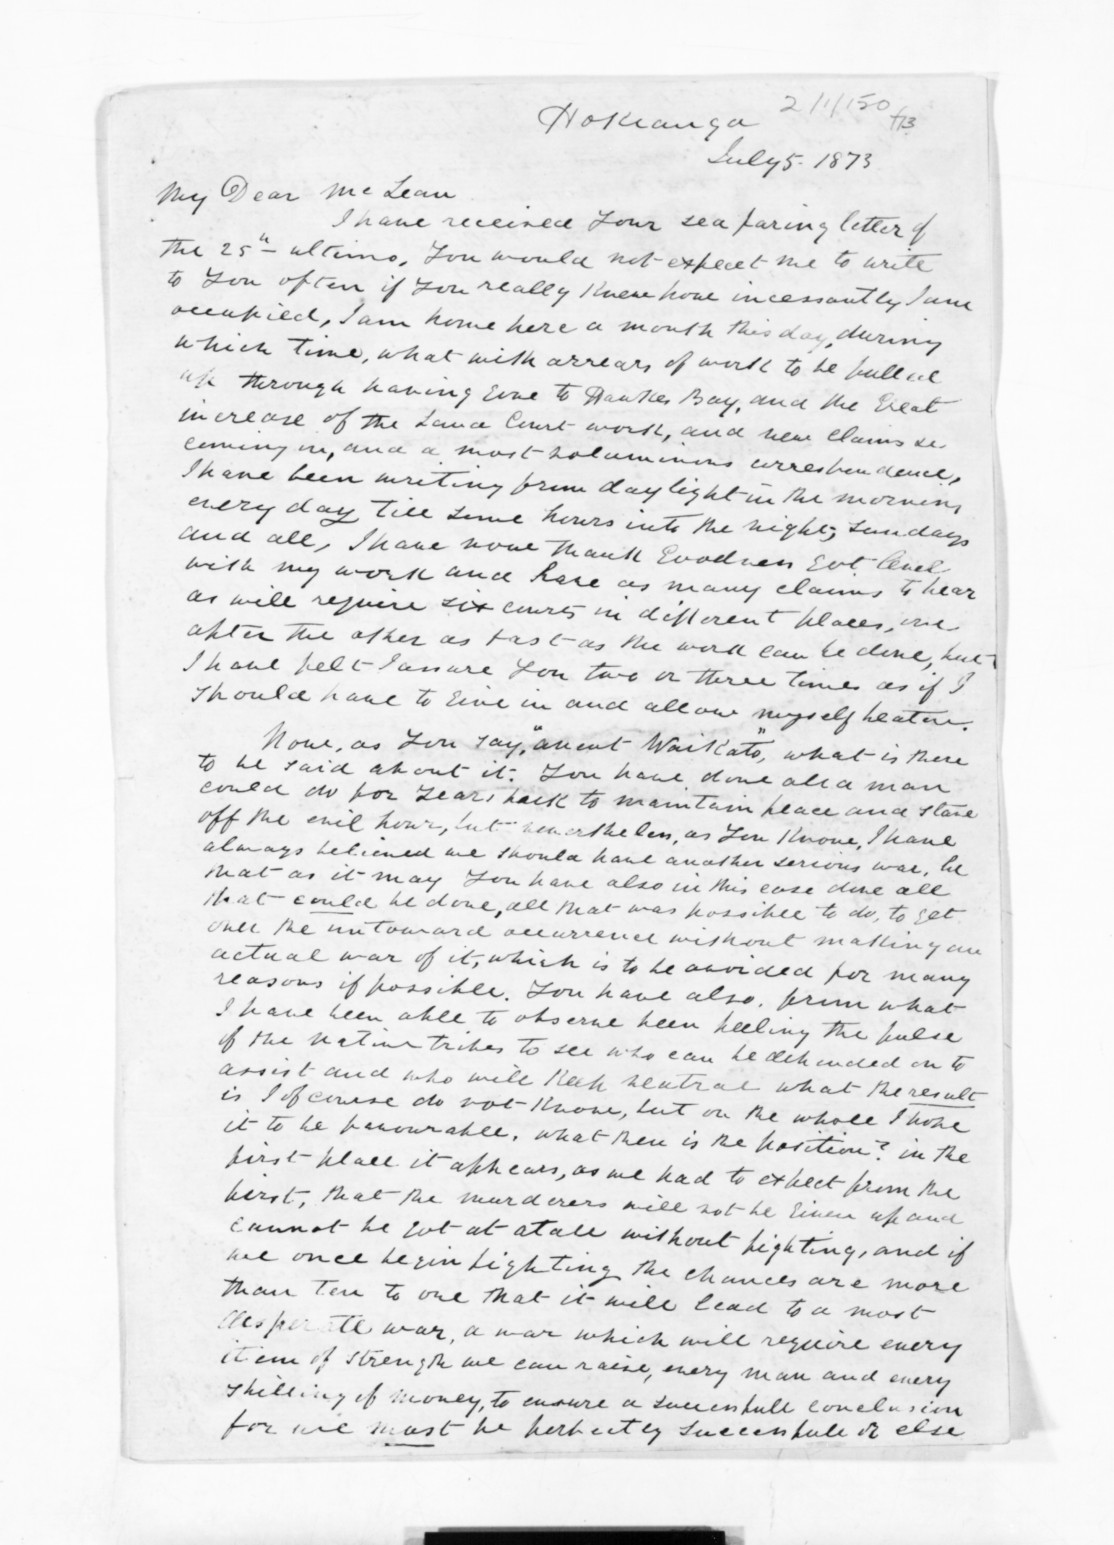 Hokianga
2/1/150
July 5. 1873
My Dear McLean
I have received your sea faring letter of
the 25th ultimo, You would not expect me to write
to you often if you really knew how incessantly I am
occupied, I am home here a month this day, during
which time, what with arrears of work to be pulled
up through having gone to Hawkes Bay, and the great
increase of the Land Court work, and new claims
coming in, and a most voluminous correspondence,
I have been writing from daylight in the morning
every day till some hours into the night, Sundays
and all, I have now thank Goodness got level
with my work and have as many claims to hear
as will require six courts in different places, one
after the other as fast as the work can be done, but
I have felt I assure you two or three times as if I
should have to give in and allow myself beaten.
Now, as you say, "anent Waikato", what is there
to be said about it. You have done all a man
could do for years back to maintain peace and stave
off the evil hour, but nevertheless, as you know, I have
always believed we should have another serious war, be
that as it may You have also in this case done all
that could be done, all that was possible to do, to get
over the untoward occurrence without making an
actual war of it, which is to be avoided for many
reasons if possible. You have also, from what
I have been able to observe been feeling the pulse
of the Native tribes to see who can be depended on to
assist and who will keep neutral what the result
is I of course do not know, but on the whole I hope
it to be favourable. what then is the position? in the
first place it appears, as we had to expect from the
first, that the murderers will not be given up and
cannot be got at atall without fighting, and if
we once begin fighting the chances are more
than ten to one that it will lead to a most
desperate war, a war which will require every
item of strength we can raise, every man and every
shilling of money, to ensure a successfull conclusion
for we must be perfectly successfull or else